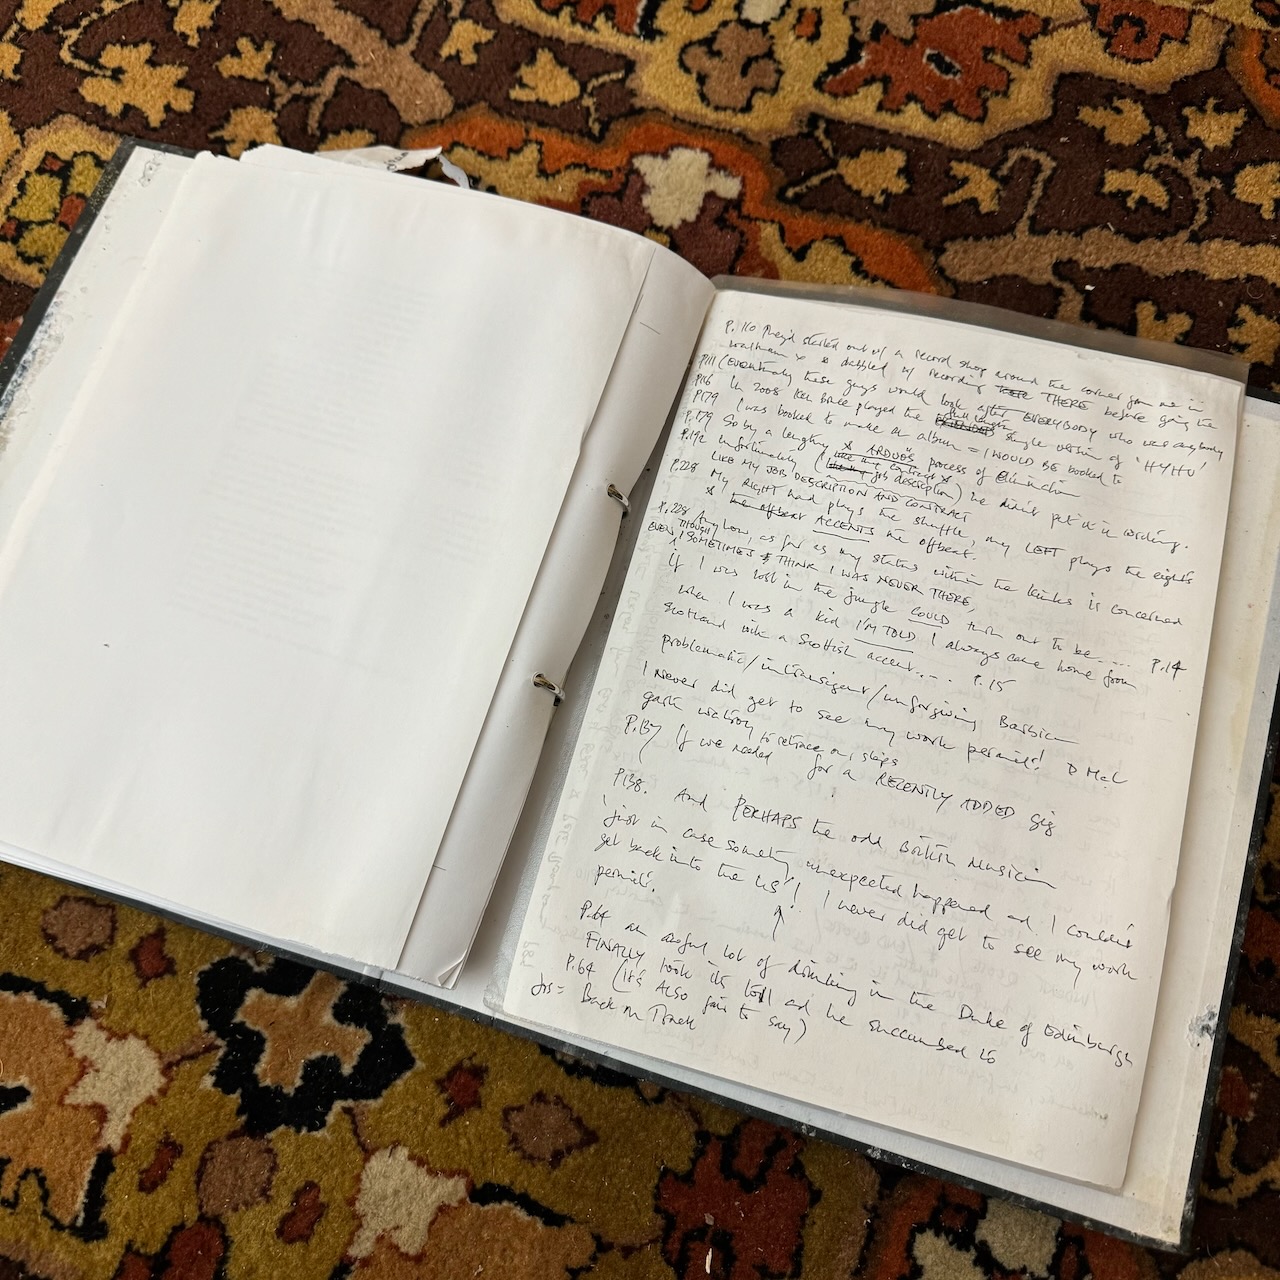 P. 110 They'd started out w/ a record shop around the corner from me in
Waltham x & dabbled w/ recording THERE before going the
P111 (EVENTUALLY these guys would look after EVERYBODY who was anybody
P116 In 2008 Ken Bruce played the full length single version of 'HYHU'
P179 I was booked to make an album = I WOULD BE booked to
P.179 So by a lengthy & ARDUOUS process of elimination
P.192 Unfortunately (job description) he didn't put it in writing.
LIKE MY JOB DESCRIPTION AND CONTRACT
P.228 My RIGHT hand plays the shuffle, my LEFT plays the eights
& ACCENTS the offbeat.
P.228 Anyhow, as far as my status within the Kinks is concerned
EVEN THOUGH I SOMETIMES THINK I WAS NEVER THERE,
if I was lost in the jungle COULD turn out to be.... P.14
when I was a kid I'M TOLD I always came home from
Scotland with a Scottish accent.... P.15
problematic/intransigent/unforgiving Barbican
I never did get to see my work permit! D McL
to retrace our steps
P.137 If we needed for a RECENTLY ADDED gig
P138. And PERHAPS the odd British musician
'just in case something unexpected happened and I couldn't
get back into the US'! I never did get to see my work
permit.
P.64 an awful lot of drinking in the Duke of Edinburgh
FINALLY took its toll and he succumbed to
P.64 (it's ALSO fair to say)
Back on Track